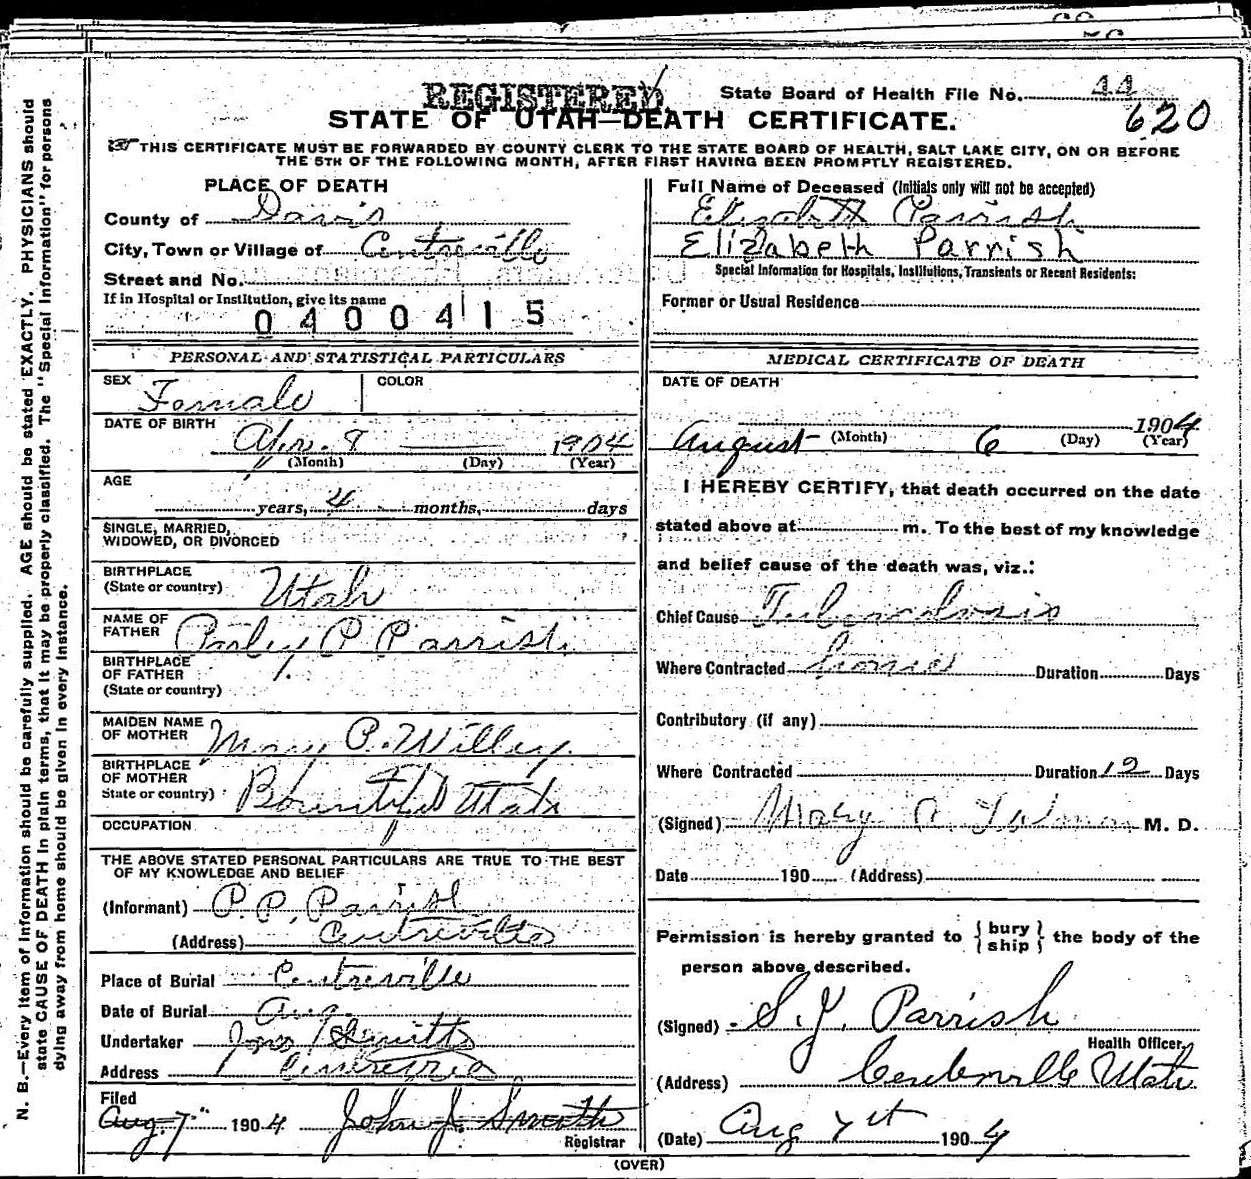 REGISTERED
State Board of Health File No. 44
620
STATE OF UTAH—DEATH CERTIFICATE.
THIS CERTIFICATE MUST BE FORWARDED BY COUNTY CLERK TO THE STATE BOARD OF HEALTH, SALT LAKE CITY, ON OR BEFORE
THE 5TH OF THE FOLLOWING MONTH, AFTER FIRST HAVING BEEN PROMPTLY REGISTERED.
N. B.—Every item of information should be carefully supplied. AGE should be stated EXACTLY. PHYSICIANS should
state CAUSE OF DEATH in plain terms, that it may be properly classified. The "Special Information" for persons
dying away from home should be given in every instance.
PLACE OF DEATH
County of Davis
City, Town or Village of Centreville
Street and No.
If in Hospital or Institution, give its name
0400415
Full Name of Deceased (Initials only will not be accepted)
Elizabeth Parrish
Elizabeth Parrish
Special Information for Hospitals, Institutions, Transients or Recent Residents:
Former or Usual Residence
PERSONAL AND STATISTICAL PARTICULARS
SEX Female COLOR
DATE OF BIRTH
Apr. 8 1904
(Month) (Day) (Year)
AGE
years, 4 months, days
SINGLE, MARRIED,
WIDOWED, OR DIVORCED
BIRTHPLACE
(State or country) Utah
NAME OF
FATHER Parley P Parrish
BIRTHPLACE
OF FATHER
(State or country)
MAIDEN NAME
OF MOTHER Mary P. Willey
BIRTHPLACE
OF MOTHER
State or country) Bountiful Utah
OCCUPATION
THE ABOVE STATED PERSONAL PARTICULARS ARE TRUE TO THE BEST
OF MY KNOWLEDGE AND BELIEF
(Informant) P. P. Parrish
(Address) Centreville
Place of Burial Centreville
Date of Burial Aug.
Undertaker Smith
Address Centreville
Filed
Aug. 7" 1904 John J. Smith
Registrar
MEDICAL CERTIFICATE OF DEATH
DATE OF DEATH
August 6 1904
(Month) (Day) (Year)
I HEREBY CERTIFY, that death occurred on the date
stated above at m. To the best of my knowledge
and belief cause of the death was, viz.:
Chief Cause Tuberculosis
Where Contracted home Duration Days
Contributory (if any)
Where Contracted Duration 12 Days
(Signed) Mary M. D.
Date 190 (Address)
Permission is hereby granted to { bury
ship } the body of the
person above described.
(Signed) S. J. Parrish
Health Officer.
(Address) Centerville Utah
(Date) Aug 7st 1904
(OVER)